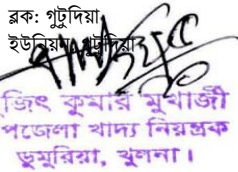 ব্লক: গুটুদিয়া
ইউনিয়ন: গুটুদিয়া
জিৎ কুমার মুখার্জী
পজেলা খাদ্য নিয়ন্ত্রক
ডুমুরিয়া, খুলনা।